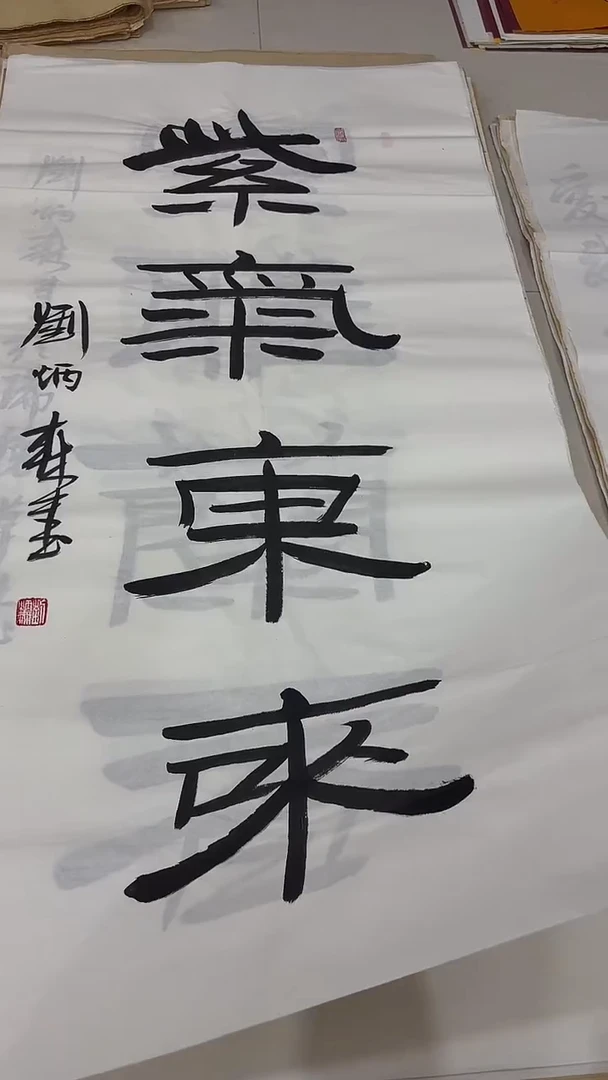 紫氣東來
劉炳森書